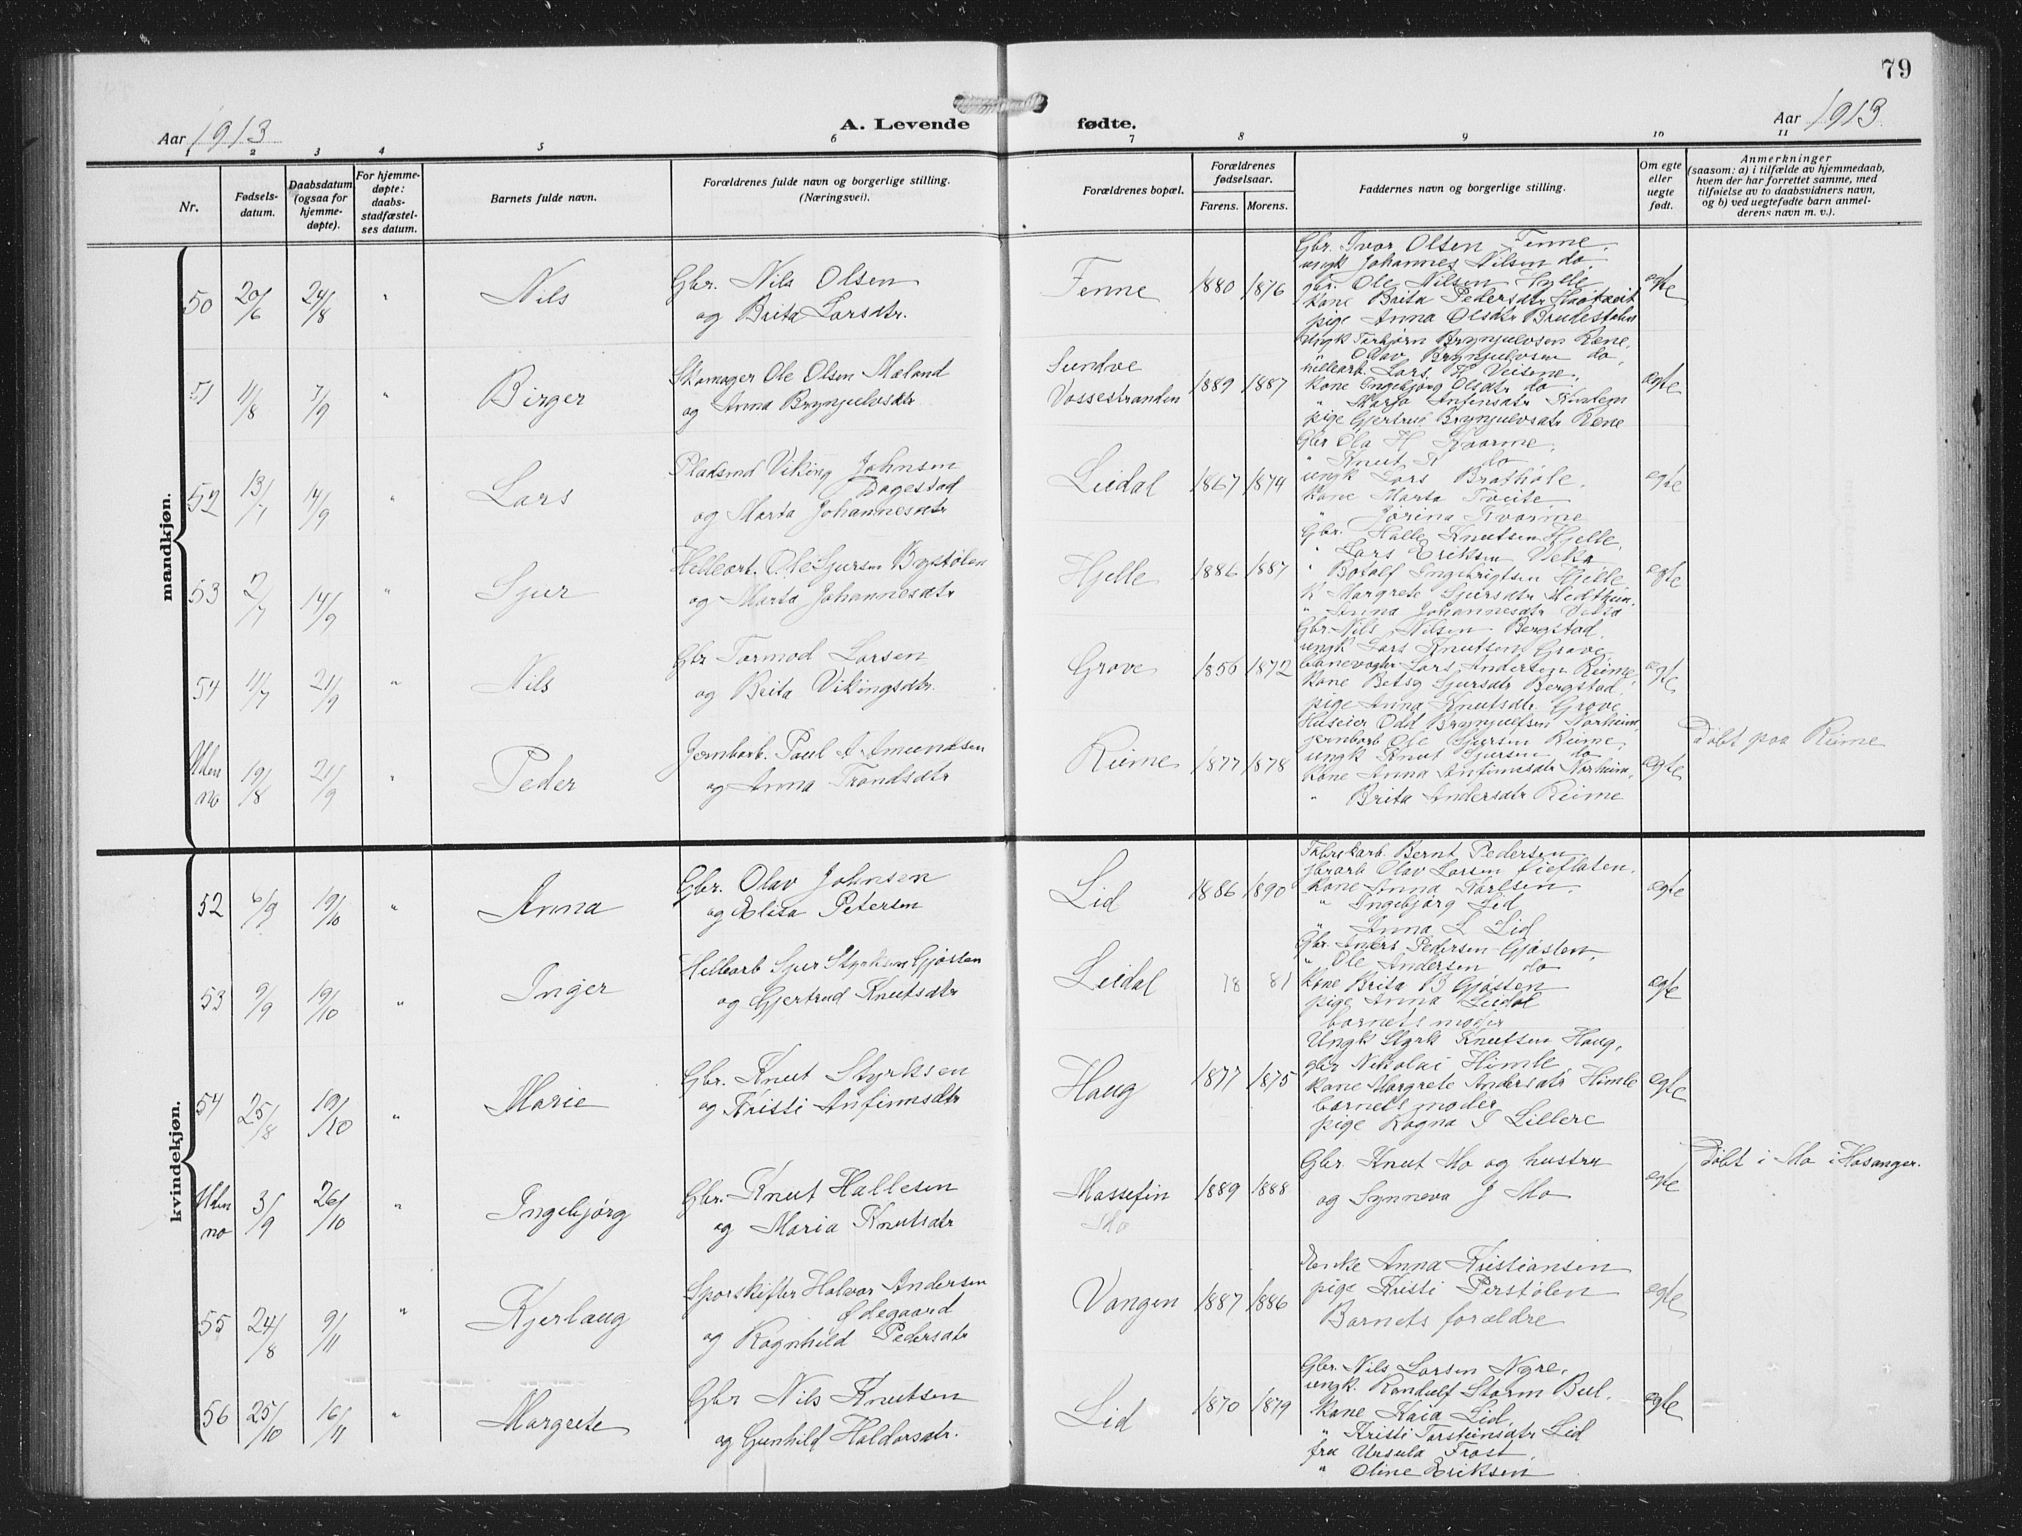 79
Aar 1913
A. Levende fødte.
Aar 1913
1 2 3 4 5 6 7 8 9 10 11
Nr.
Fødsels-
datum.
Daabsdatum
(ogsaa for
hjemme-
døpte).
For hjemme-
døpte:
daabs-
stadfæstel-
ses datum.
Barnets fulde navn.
Forældrenes fulde navn og borgerlige stilling.
(Næringsvei).
Forældrenes bopæl.
Forældrenes
fødselsaar.
Farens. Morens.
Faddernes navn og borgerlige stilling.
Om egte
eller
uegte
født.
Anmerkninger
(saasom: a) i tilfælde av hjemmedaab,
hvem der har forrettet samme, med
tilføielse av to daabsvidners navn,
og b) ved uegtefødte barn anmel-
derens navn m. v.).
mandkjøn.
50 20/6 24/8 " Nils
Gbr. Nils Olsen
og Brita Larsdtr.
Fenne 1880 1876
Gbr. Ivar Olsen Fenne,
ungk Johannes Nilsen do,
gbr. Ole Nilsen Hylle
kone Brita Pedersdtr
pige Anna Olsdtr Brudestølen
egte
51 11/8 7/9 " Birger
Skomager Ole Olsen Mæland
og Anna Brynjulvsdtr
Sundve
Vossestranden 1889 1887
ungk Torbjørn Brynjulvsen Rene,
" Olav Brynjulvsen do,
hellearb. Lars K Veisene,
kone Ingebjørg Olsdtr do
" Marjo Anfinsdtr
pige Gjertrud Brynjulvsdtr Rene
egte
52 13/7 14/9 " Lars
Pladsmd Viking Johnsen
Dagestad
og Marta Johannesdtr
Liedal 1867 1879
Gbr Ola H Kvarme,
" Knut K do
ungk Lars Brathole,
kone Marta Tveite
" Jørina Kvarme
egte
53 2/7 14/9 " Sjur
Hellearb. Ole Sjursen Bystølen
og Marta Johannesdtr
Hjelle 1886 1887
Gbr. Halle Knutsen Hjelle,
" Lars Eriksen Veka
" Botolf Ingebrigtsen Hjelle,
K Margrete Sjursdtr
" Anna Johannesdtr Veka
egte
54 11/7 21/9 " Nils
Gbr Tormod Larsen
og Brita Vikingsdtr.
Grove 1856 1872
Gbr. Nils Nilsen Bergstad,
ungk Lars Knutsen Grove
banevogter Lars Andersen Rieme,
kone Betsy Sjursdtr Bergstad,
pige Anna Knutsdtr Grove
egte
Uten
no 19/8 21/9 " Peder
Jernbarb. Paul A Amundsen
og Anna Trondsdtr
Rieme 1877 1878
Huseier Odd Brynjulfsen Norheim,
jernbarb Ole Sjursen Rieme,
ungk Knut Sjursen do
kone Anna Anfinnsdtr Norheim,
" Brita Andersdtr Rieme
egte Døbt paa Rieme
kvindekjøn.
52 6/9 19/10 " Anna
Gbr. Olav Johnsen
og Elisa Petersen
Lid 1886 1890
Fabrikarb. Bernt Pedersen
jbrarb Olav Larsen Gieflaten,
kone Anna Karlsen,
" Ingebjørg Lid
" Anna L Lid
egte
53 9/9 19/10 " Inger
Hellearb Sjur Styrksen Gjøsten
og Gjertrud Knutsdtr
Liedal 78 81
Gbr. Anders Pedersen Gjøsten,
" Ole Andersen do
kone Brita B Gjøsten
pige Anna Liedal
barnets moder
egte
54 25/8 19/10 " Marie
Gbr. Knut Styrksen
og Kristi Anfinnsdtr
Haug 1877 1875
Ungk Styrk Knutsen Haug,
gbr Nikolai Himle
kone Margrete Andersdtr Himle
barnets moder
pige Ragna I Lillere
egte
Uten
no 3/9 26/10 " Ingebjørg
Gbr. Knut Hallesen
og Maria Knutsdtr
Massefin
Mo 1889 1888
Gbr. Knut Mo og hustru
og Synneva J Mo
egte Døbt i Mo i Hosanger.
55 24/8 9/11 " Kjerlaug
Sporskifter Halvor Andersen
Ødegaard
og Ragnhild Pedersdtr
Vangen 1887 1886
Enke Anna Kristiansen
pige Kristi Perstølen
Barnets forældre
egte
56 25/10 16/11 " Margrete
Gbr Nils Knutsen
og Gunhild Haldorsdtr.
Lid 1870 1879
Gbr. Nils Larsen Nyre,
ungk. Randulf Storm Bul.
kone Kaia Lid,
" Kristi Torsteinsdtr Lid
fru Ursula Frost,
" Oline Eriksen
egte